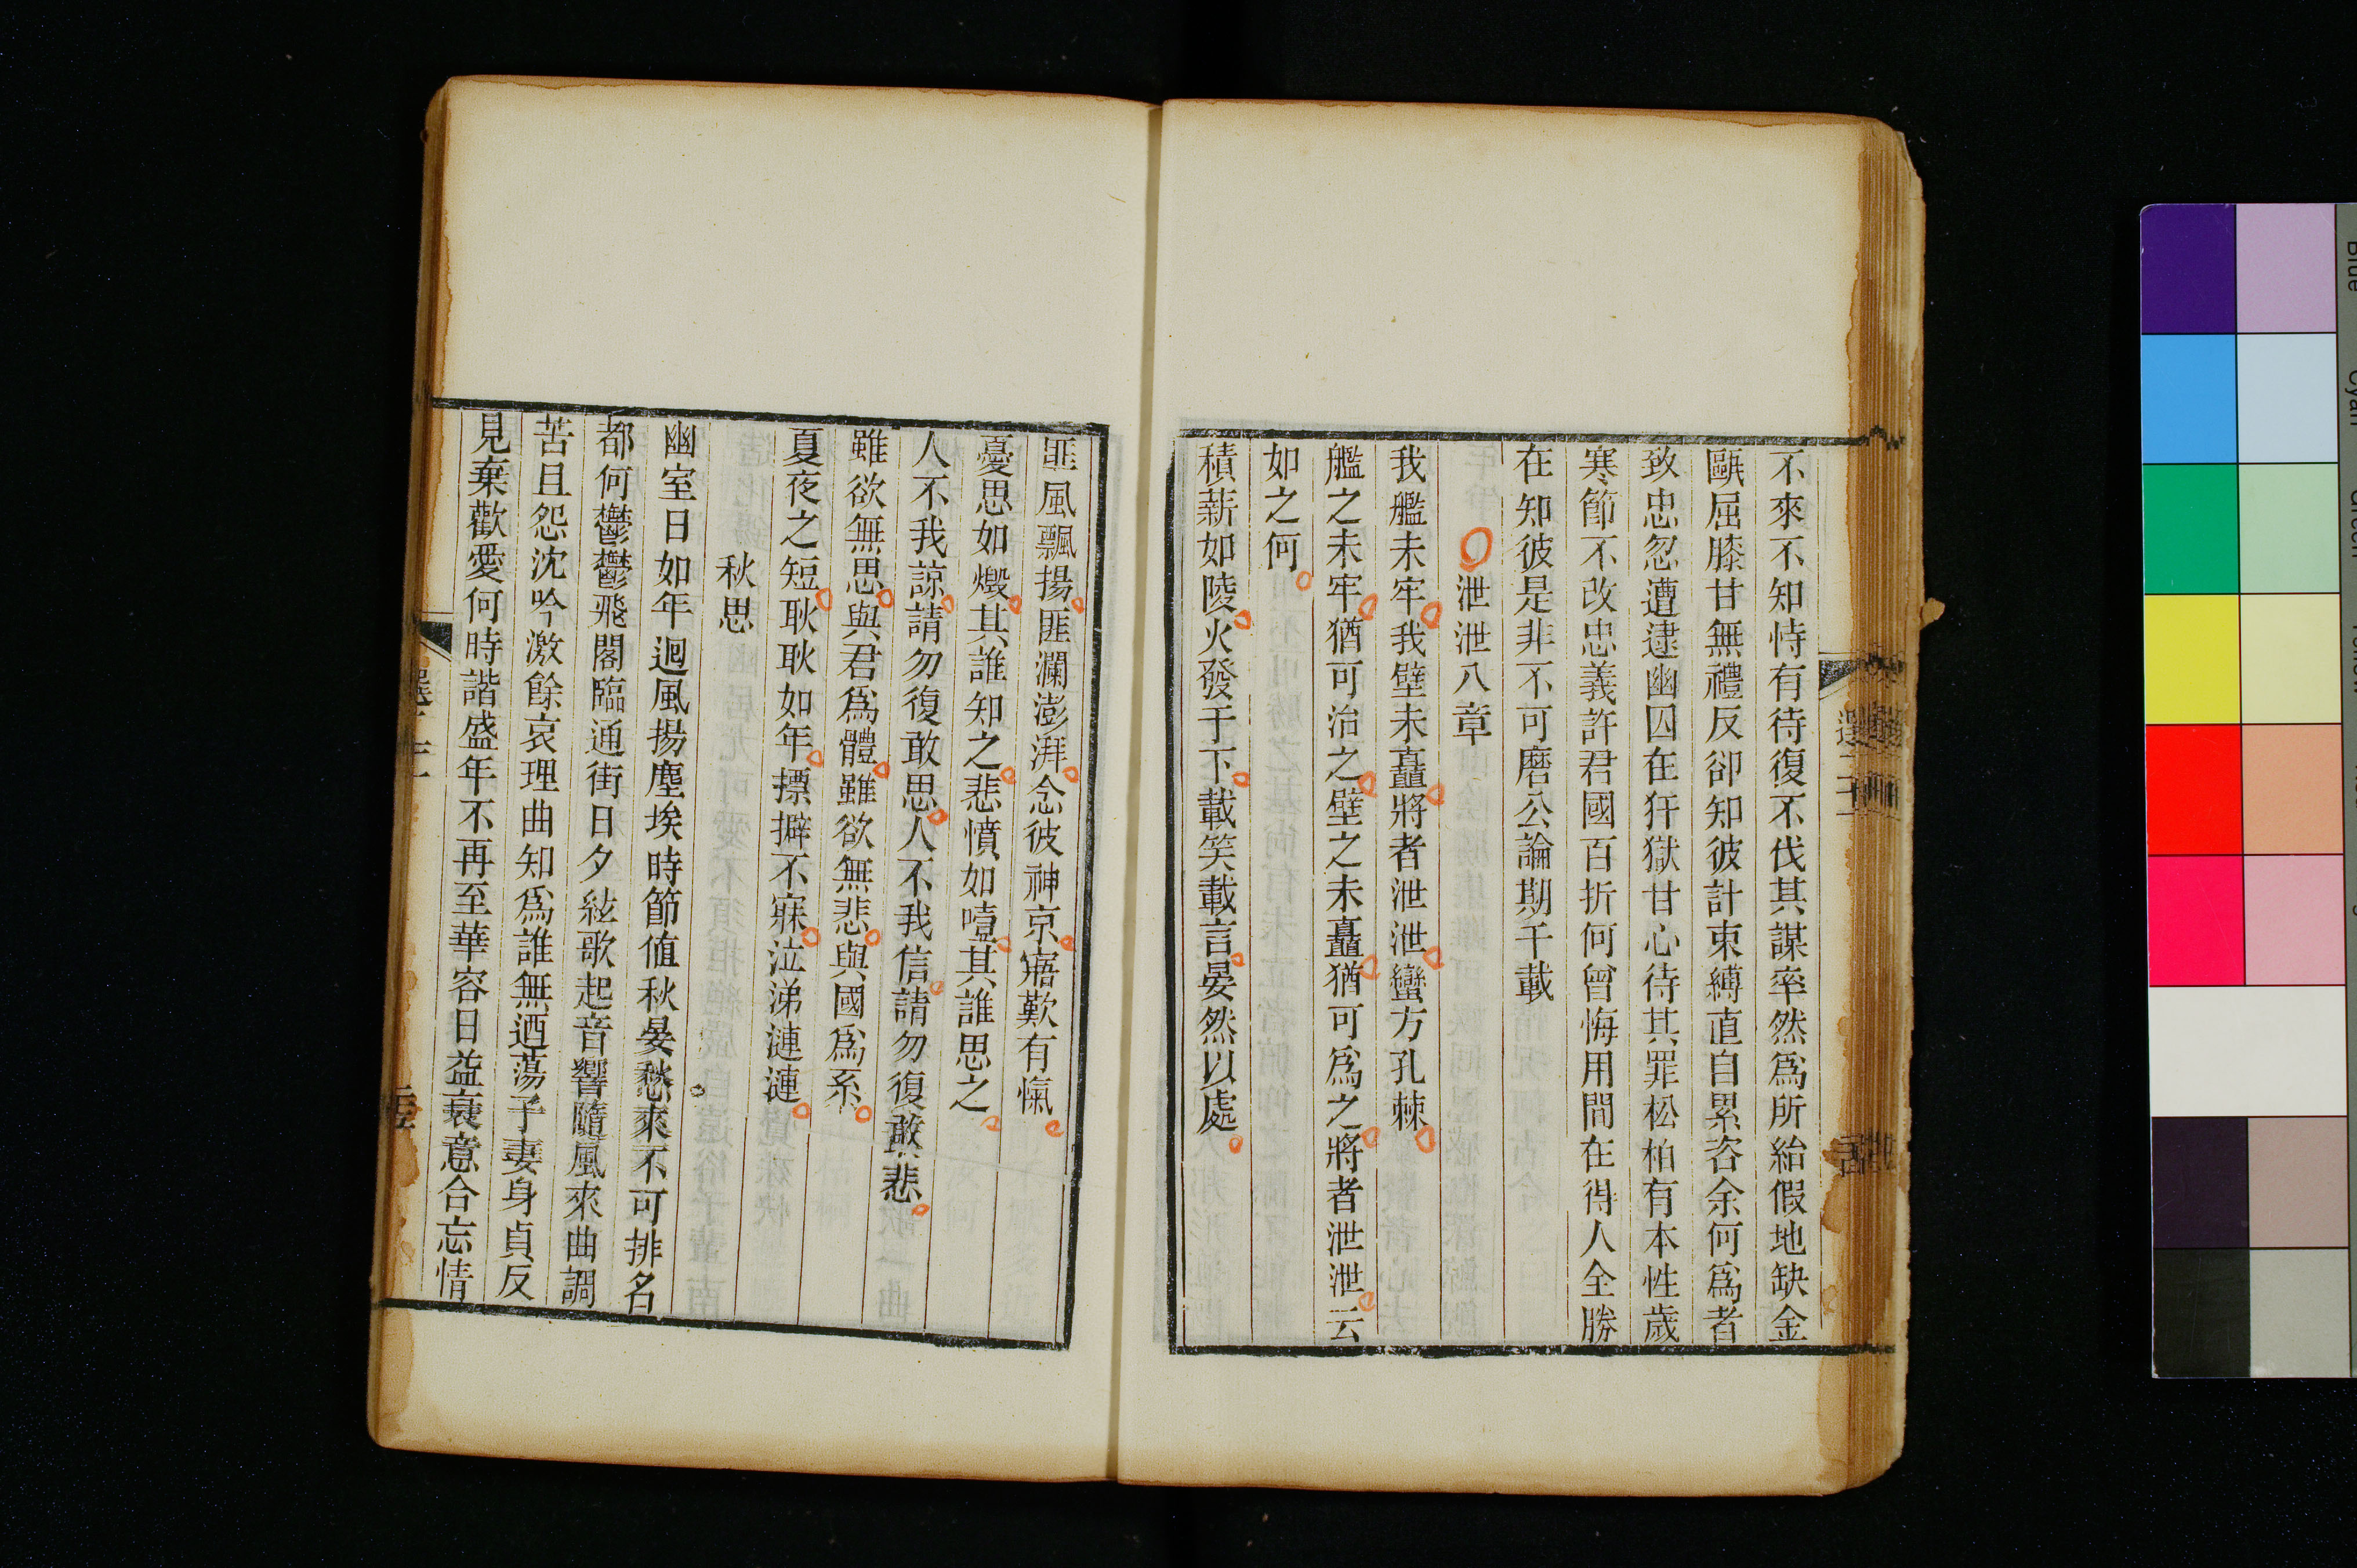 不來不知恃有待復不伐其謀率然爲所紿假地缺金
甌屈膝甘無禮反卻知彼計束縛直自累咨余何爲者
致忠忽遭逮幽囚在犴獄甘心待其罪松柏有本性歲
寒節不改忠義許君國百折何曾悔用間在得人全勝
在知彼是非不可磨公論期千載
泄泄八章
我艦未牢我壁未矗將者泄泄蠻方孔棘
艦之未牢猶可治之壁之未矗猶可爲之將者泄泄云
如之何
積薪如陵火發于下載笑載言晏然以處
匪風飄揚匪瀾澎湃念彼神京寤歎有愾
憂思如燬其誰知之悲憤如噎其誰思之
人不我諒請勿復敢思人不我信請勿復敢悲
雖欲無思與君爲體雖欲無悲與國爲系
夏夜之短耿耿如年摽擗不寐泣涕漣漣
秋思
幽室日如年迴風揚塵埃時節値秋晏愁來不可排名
都何鬱鬱飛閣臨通街日夕絃歌起音響隨風來曲調
苦且怨沈吟激餘哀理曲知爲誰無迺蕩子妻身貞反
見棄歡愛何時諧盛年不再至華容日益衰意合忘情